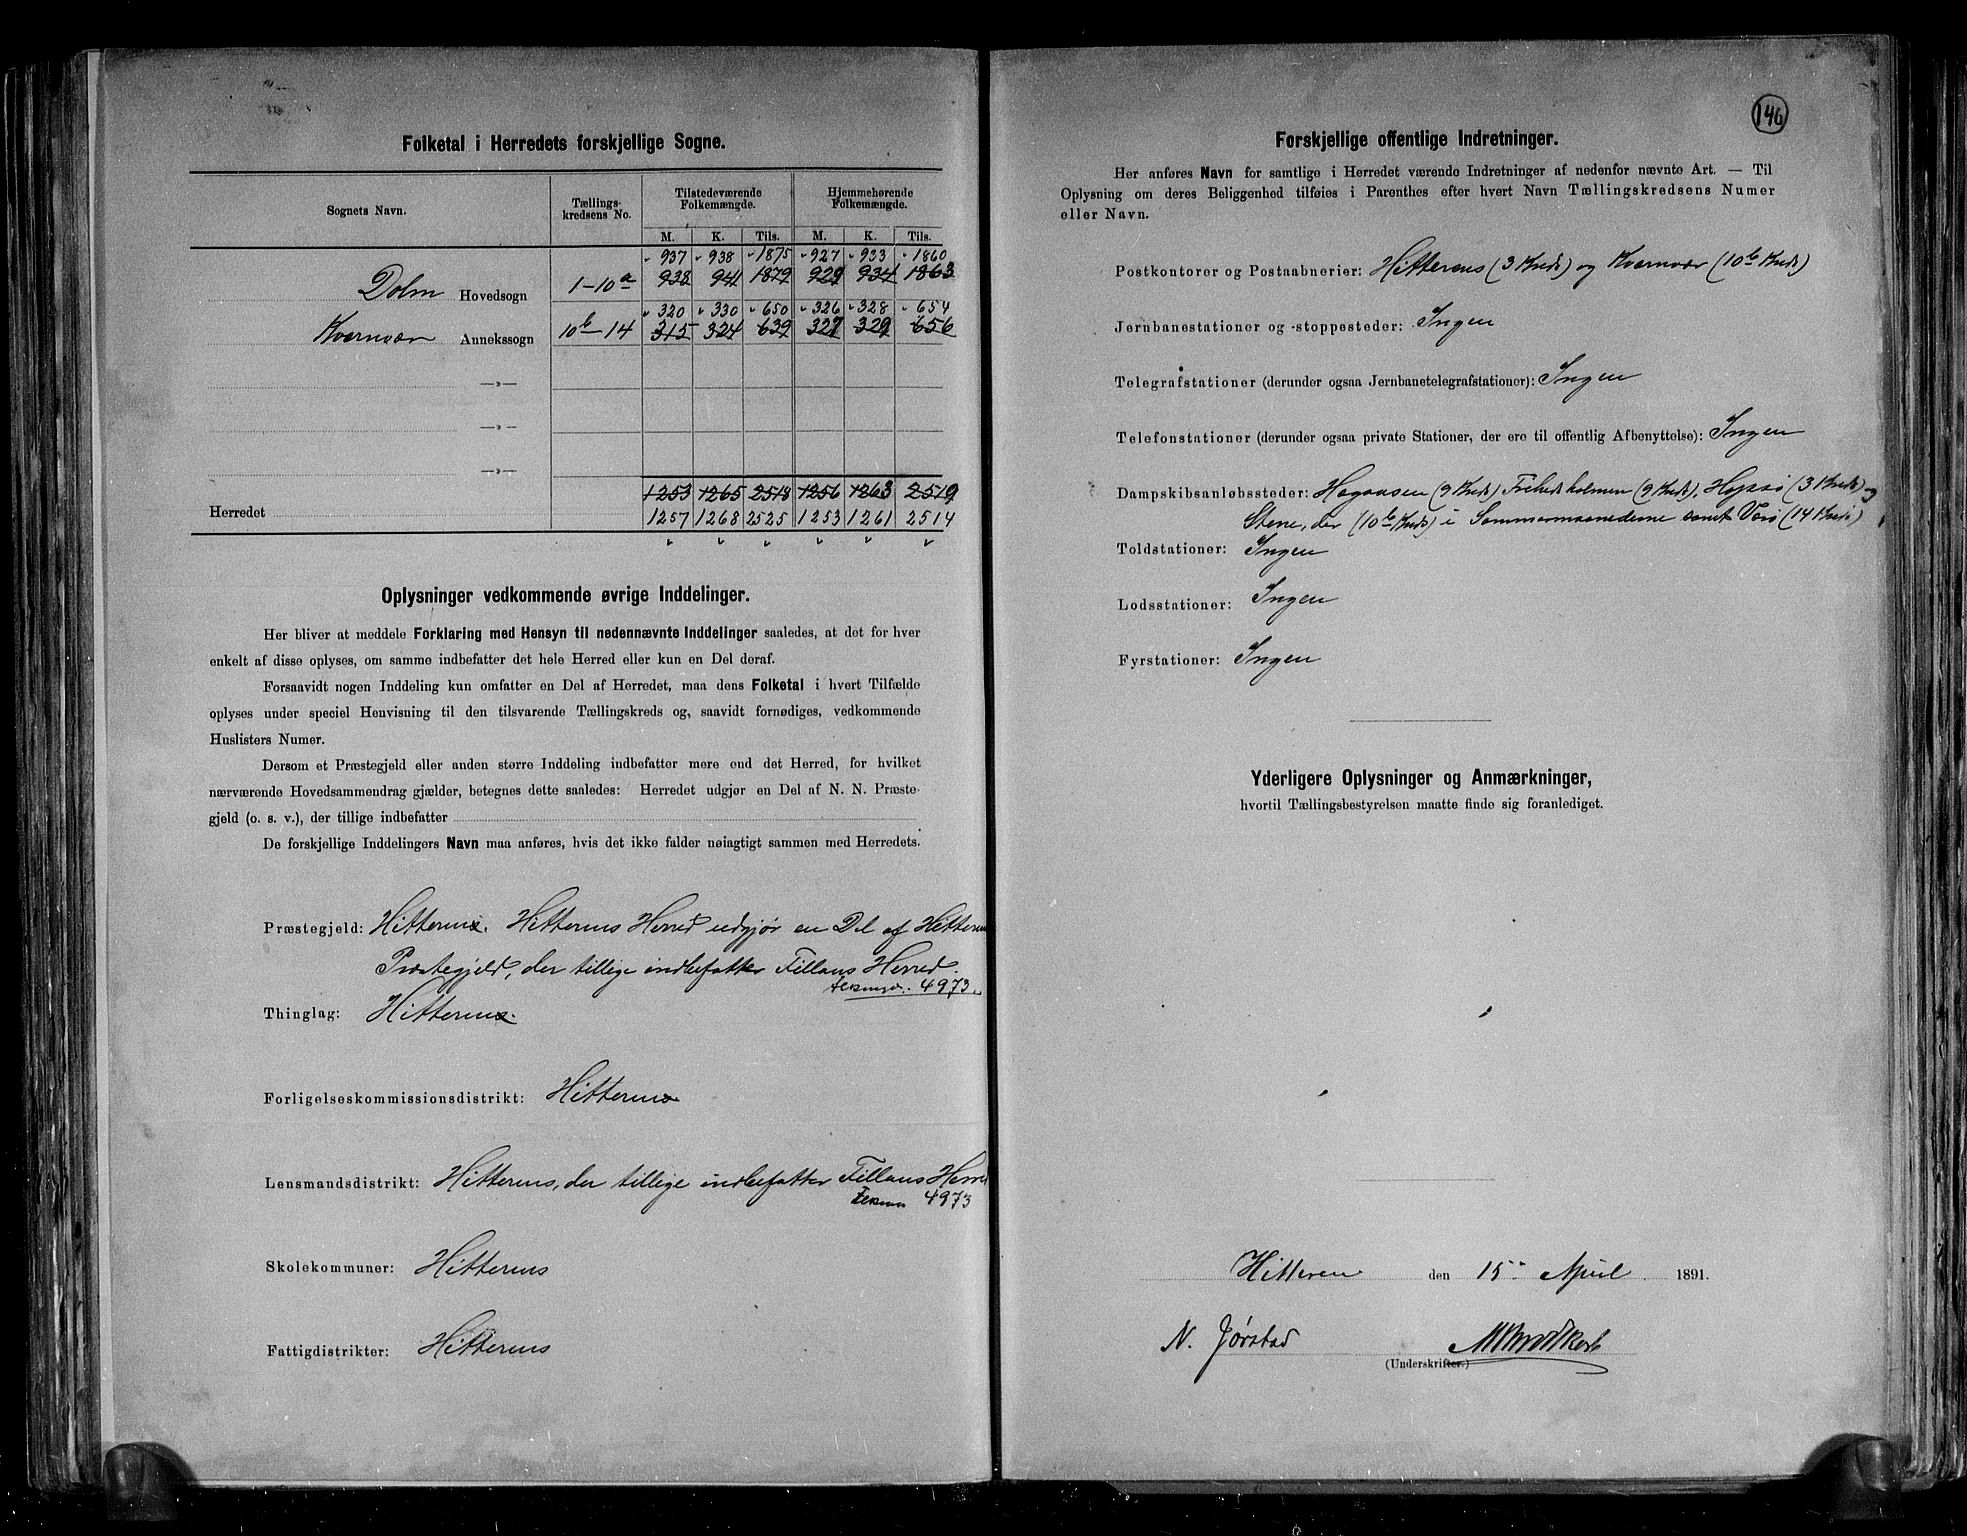 Folketal i Herredets forskjellige Sogne.
Sognets Navn.
Tællings-
kredsens No.
Tilstedeværende
Folkemængde.
Hjemmehørende
Folkemængde.
M. K. Tils. M. K. Tils.
937 938 1875 927 933 1860
Dolm Hovedsogn 1-10a 938 941 1879 929 934 1863
320 330 650 326 328 654
Kvernvær Annekssogn 10b-14 315 324 639 327 329 656
—»—
—»—
—»—
1253 1265 2518 1256 1263 2519
Herredet 1257 1268 2525 1253 1261 2514
Oplysninger vedkommende øvrige Inddelinger.
Her bliver at meddele Forklaring med Hensyn til nedennævnte Inddelinger saaledes, at det for hver
enkelt af disse oplyses, om samme indbefatter det hele Herred eller kun en Del deraf.
Forsaavidt nogen Inddeling kun omfatter en Del af Herredet, maa dens Folketal i hvert Tilfælde
oplyses under speciel Henvisning til den tilsvarende Tællingskreds og, saavidt fornødiges, vedkommende
Huslisters Numer.
Dersom et Præstegjeld eller anden større Inddeling indbefatter mere end det Herred, for hvilket
nærværende Hovedsammendrag gjælder, betegnes dette saaledes: Herredet udgjør en Del af N. N. Præste-
gjeld (o. s. v.), der tillige indbefatter
De forskjellige Inddelingers Navn maa anføres, hvis det ikke falder nøiagtigt sammen med Herredets.
Præstegjeld: Hitterens. Hitterens Herred udgjør en Del af Hitterens
Præstegjeld, der tillige indbefatter Fillans Herred.
4973.
Thinglag: Hitterens.
Forligelseskommissionsdistrikt: Hitterens
Lensmandsdistrikt: Hitterens, der tillige indbefatter Fillans Herred
4973
Skolekommuner: Hitterens
Fattigdistrikter: Hitterens
146
Forskjellige offentlige Indretninger.
Her anføres Navn for samtlige i Herredet værende Indretninger af nedenfor nævnte Art. — Til
Oplysning om deres Beliggenhed tilføies i Parenthes efter hvert Navn Tællingskredsens Numer
eller Navn.
Postkontorer og Postaabnerier: Hitterens (3 Kreds) og Kvernvær (10b Kreds)
Jernbanestationer og -stoppesteder: Ingen
Telegrafstationer (derunder ogsaa Jernbanetelegrafstationer): Ingen
Telefonstationer (derunder ogsaa private Stationer, der ere til offentlig Afbenyttelse): Ingen
Dampskibsanløbssteder: Hagaasen (9 Kreds) (9 Kreds), Hopsø (3 Kreds) og
Stene, der (10b Kreds) i Sommermaanederne samt Vasø (14 Kreds)
Toldstationer: Ingen
Lodsstationer: Ingen
Fyrstationer: Ingen
Yderligere Oplysninger og Anmærkninger,
hvortil Tællingsbestyrelsen maatte finde sig foranlediget.
Hitteren den 15de April 1891.
N. Jørstad
(Underskrifter.)